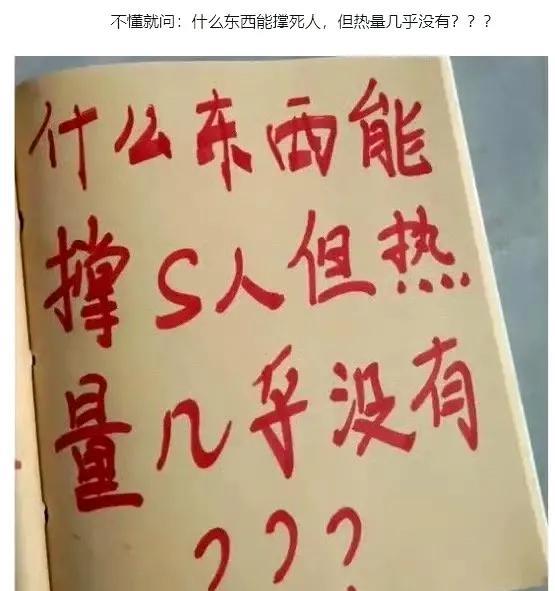 不懂就问：什么东西能撑死人，但热量几乎没有？？？
什么东西能
撑S人但热
量几乎没有
？？？